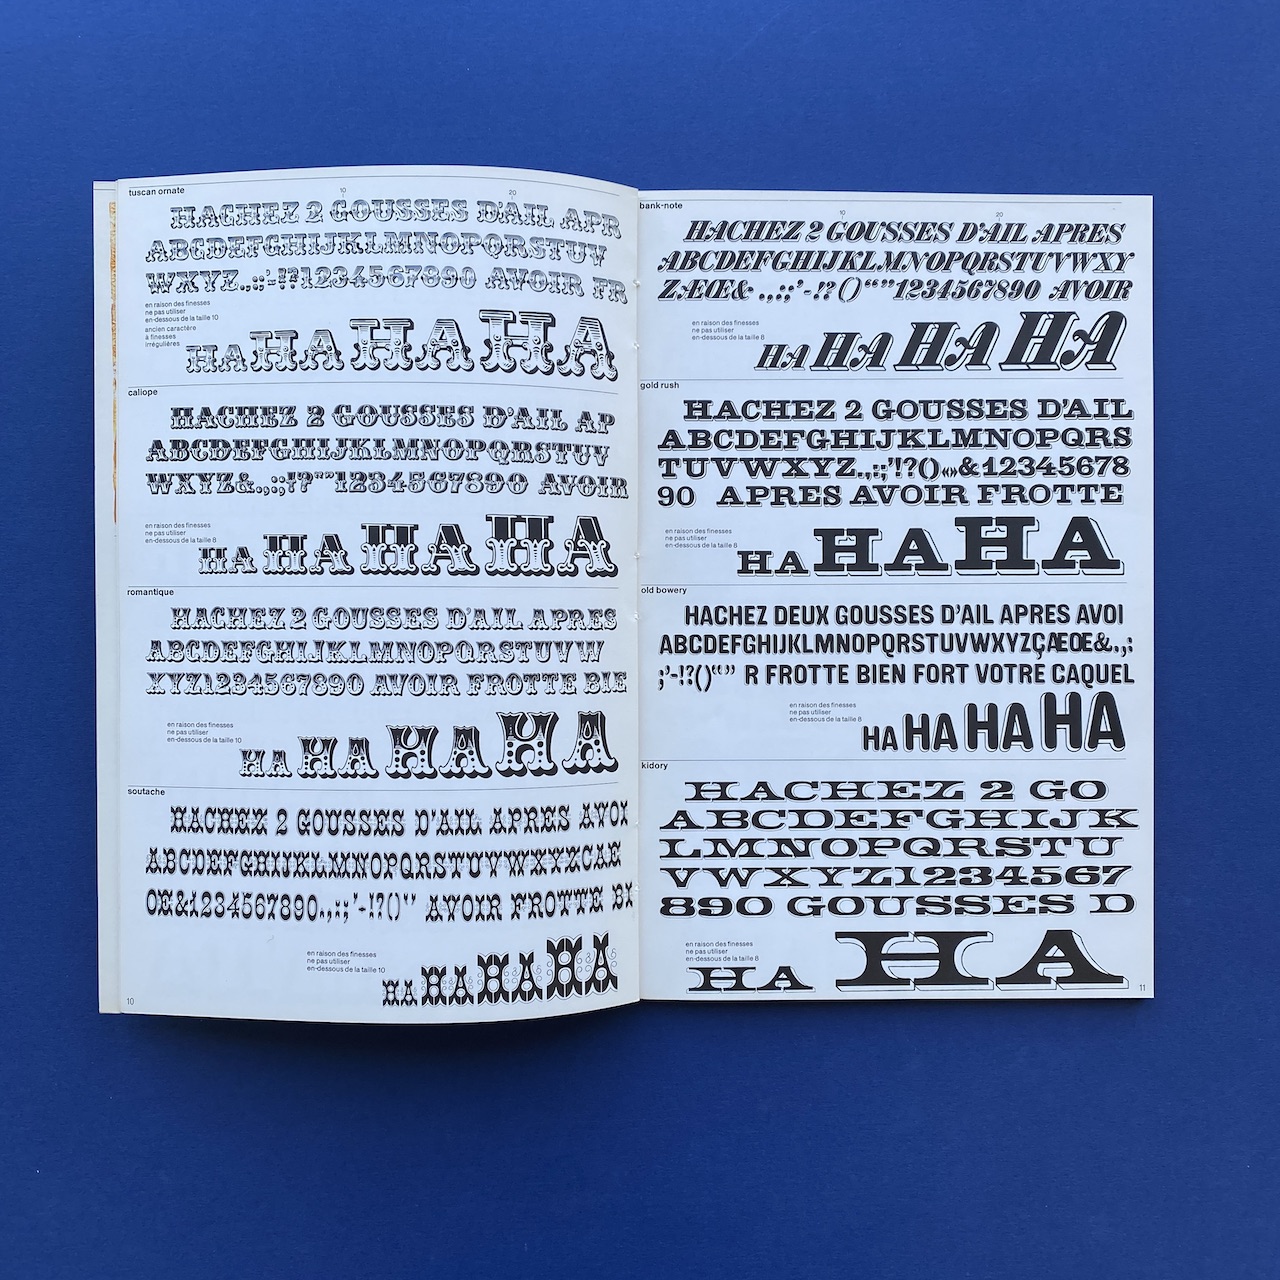 tuscan ornate
10 20
HACHEZ 2 GOUSSES D'AIL APR
ABCDEFGHIJKLMNOPQRSTUV
WXYZ.,:;'-!?1234567890 AVOIR FR
en raison des finesses
ne pas utiliser
en-dessous de la taille 10
ancien caractère
à finesses
irrégulières
HA HA HA HA
caliope
HACHEZ 2 GOUSSES D'AIL AP
ABCDEFGHIJKLMNOPQRSTUV
WXYZ&.,:;!?""1234567890 AVOIR
en raison des finesses
ne pas utiliser
en-dessous de la taille 8
HA HA HA HA
romantique
HACHEZ 2 GOUSSES D'AIL APRES
ABCDEFGHIJKLMNOPQRSTUVW
XYZ1234567890 AVOIR FROTTE BIE
en raison des finesses
ne pas utiliser
en-dessous de la taille 10
HA HA HA HA
soutache
HACHEZ 2 GOUSSES D'AIL APRES AVOI
ABCDEFGHIJKLMNOPQRSTUVWXYZÇAE
OE&1234567890.,:;'-!?()"" AVOIR FROTTE BI
en raison des finesses
ne pas utiliser
en-dessous de la taille 10
HA HA HA HA
10
bank-note
10 20
HACHEZ 2 GOUSSES D'AIL APRES
ABCDEFGHIJKLMNOPQRSTUVWXY
ZÆŒ& .,:;'-!?()“”1234567890 AVOIR
en raison des finesses
ne pas utiliser
en-dessous de la taille 8
HA HA HA HA
gold rush
HACHEZ 2 GOUSSES D'AIL
ABCDEFGHIJKLMNOPQRS
TUVWXYZ.,:;'!?()«»&12345678
90 APRES AVOIR FROTTE
en raison des finesses
ne pas utiliser
en-dessous de la taille 8
HA HA HA
old bowery
HACHEZ DEUX GOUSSES D'AIL APRES AVOI
ABCDEFGHIJKLMNOPQRSTUVWXYZÇÆŒ&.,:
;'-!?()“” R FROTTE BIEN FORT VOTRE CAQUEL
en raison des finesses
ne pas utiliser
en-dessous de la taille 8
HA HA HA HA
kidory
HACHEZ 2 GO
ABCDEFGHIJK
LMNOPQRSTU
VWXYZ1234567
890 GOUSSES D
en raison des finesses
ne pas utiliser
en-dessous de la taille 8
HA HA
11